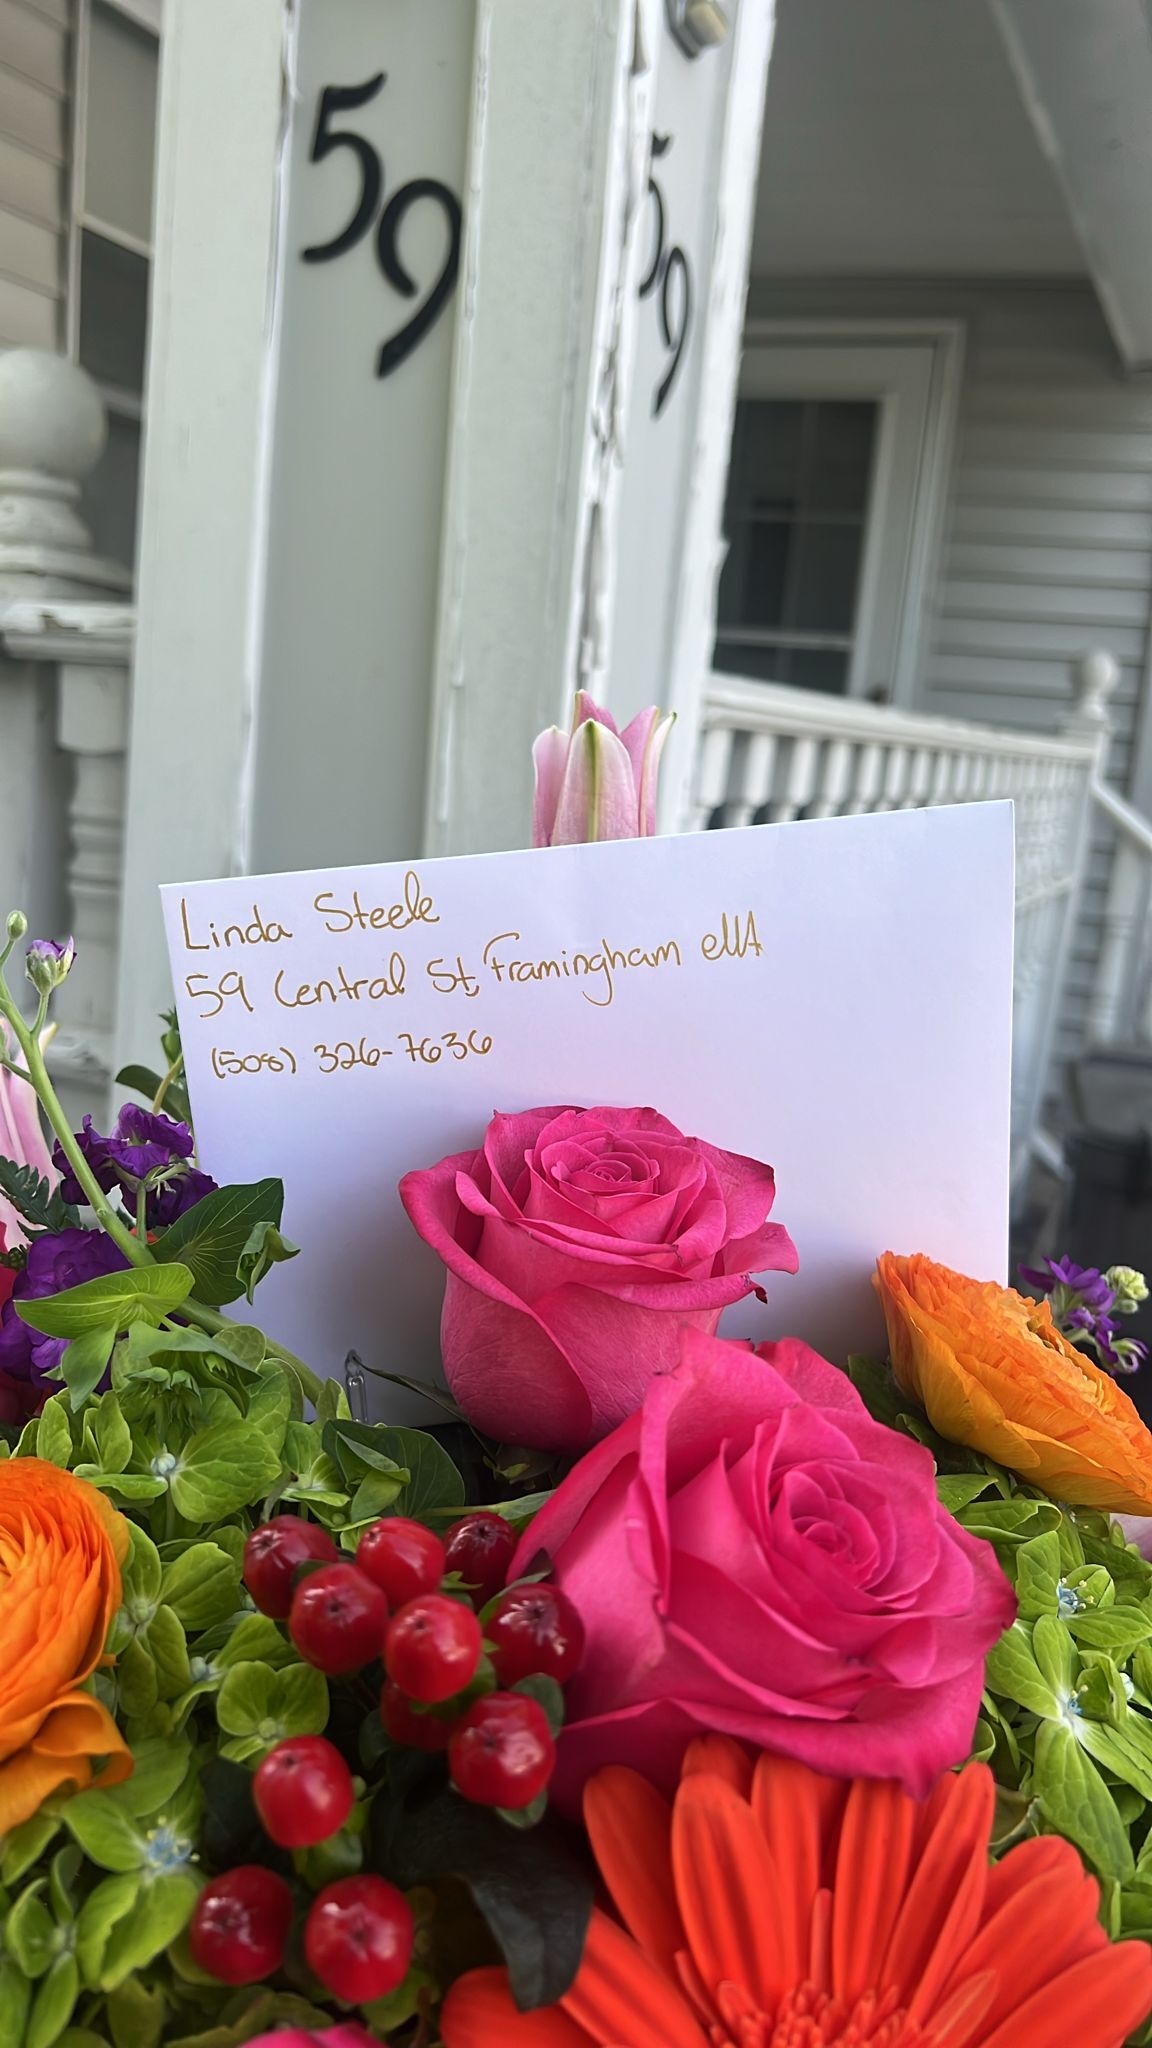 59
59
Linda Steele
59 Central St, Framingham MA
(508) 326-7636